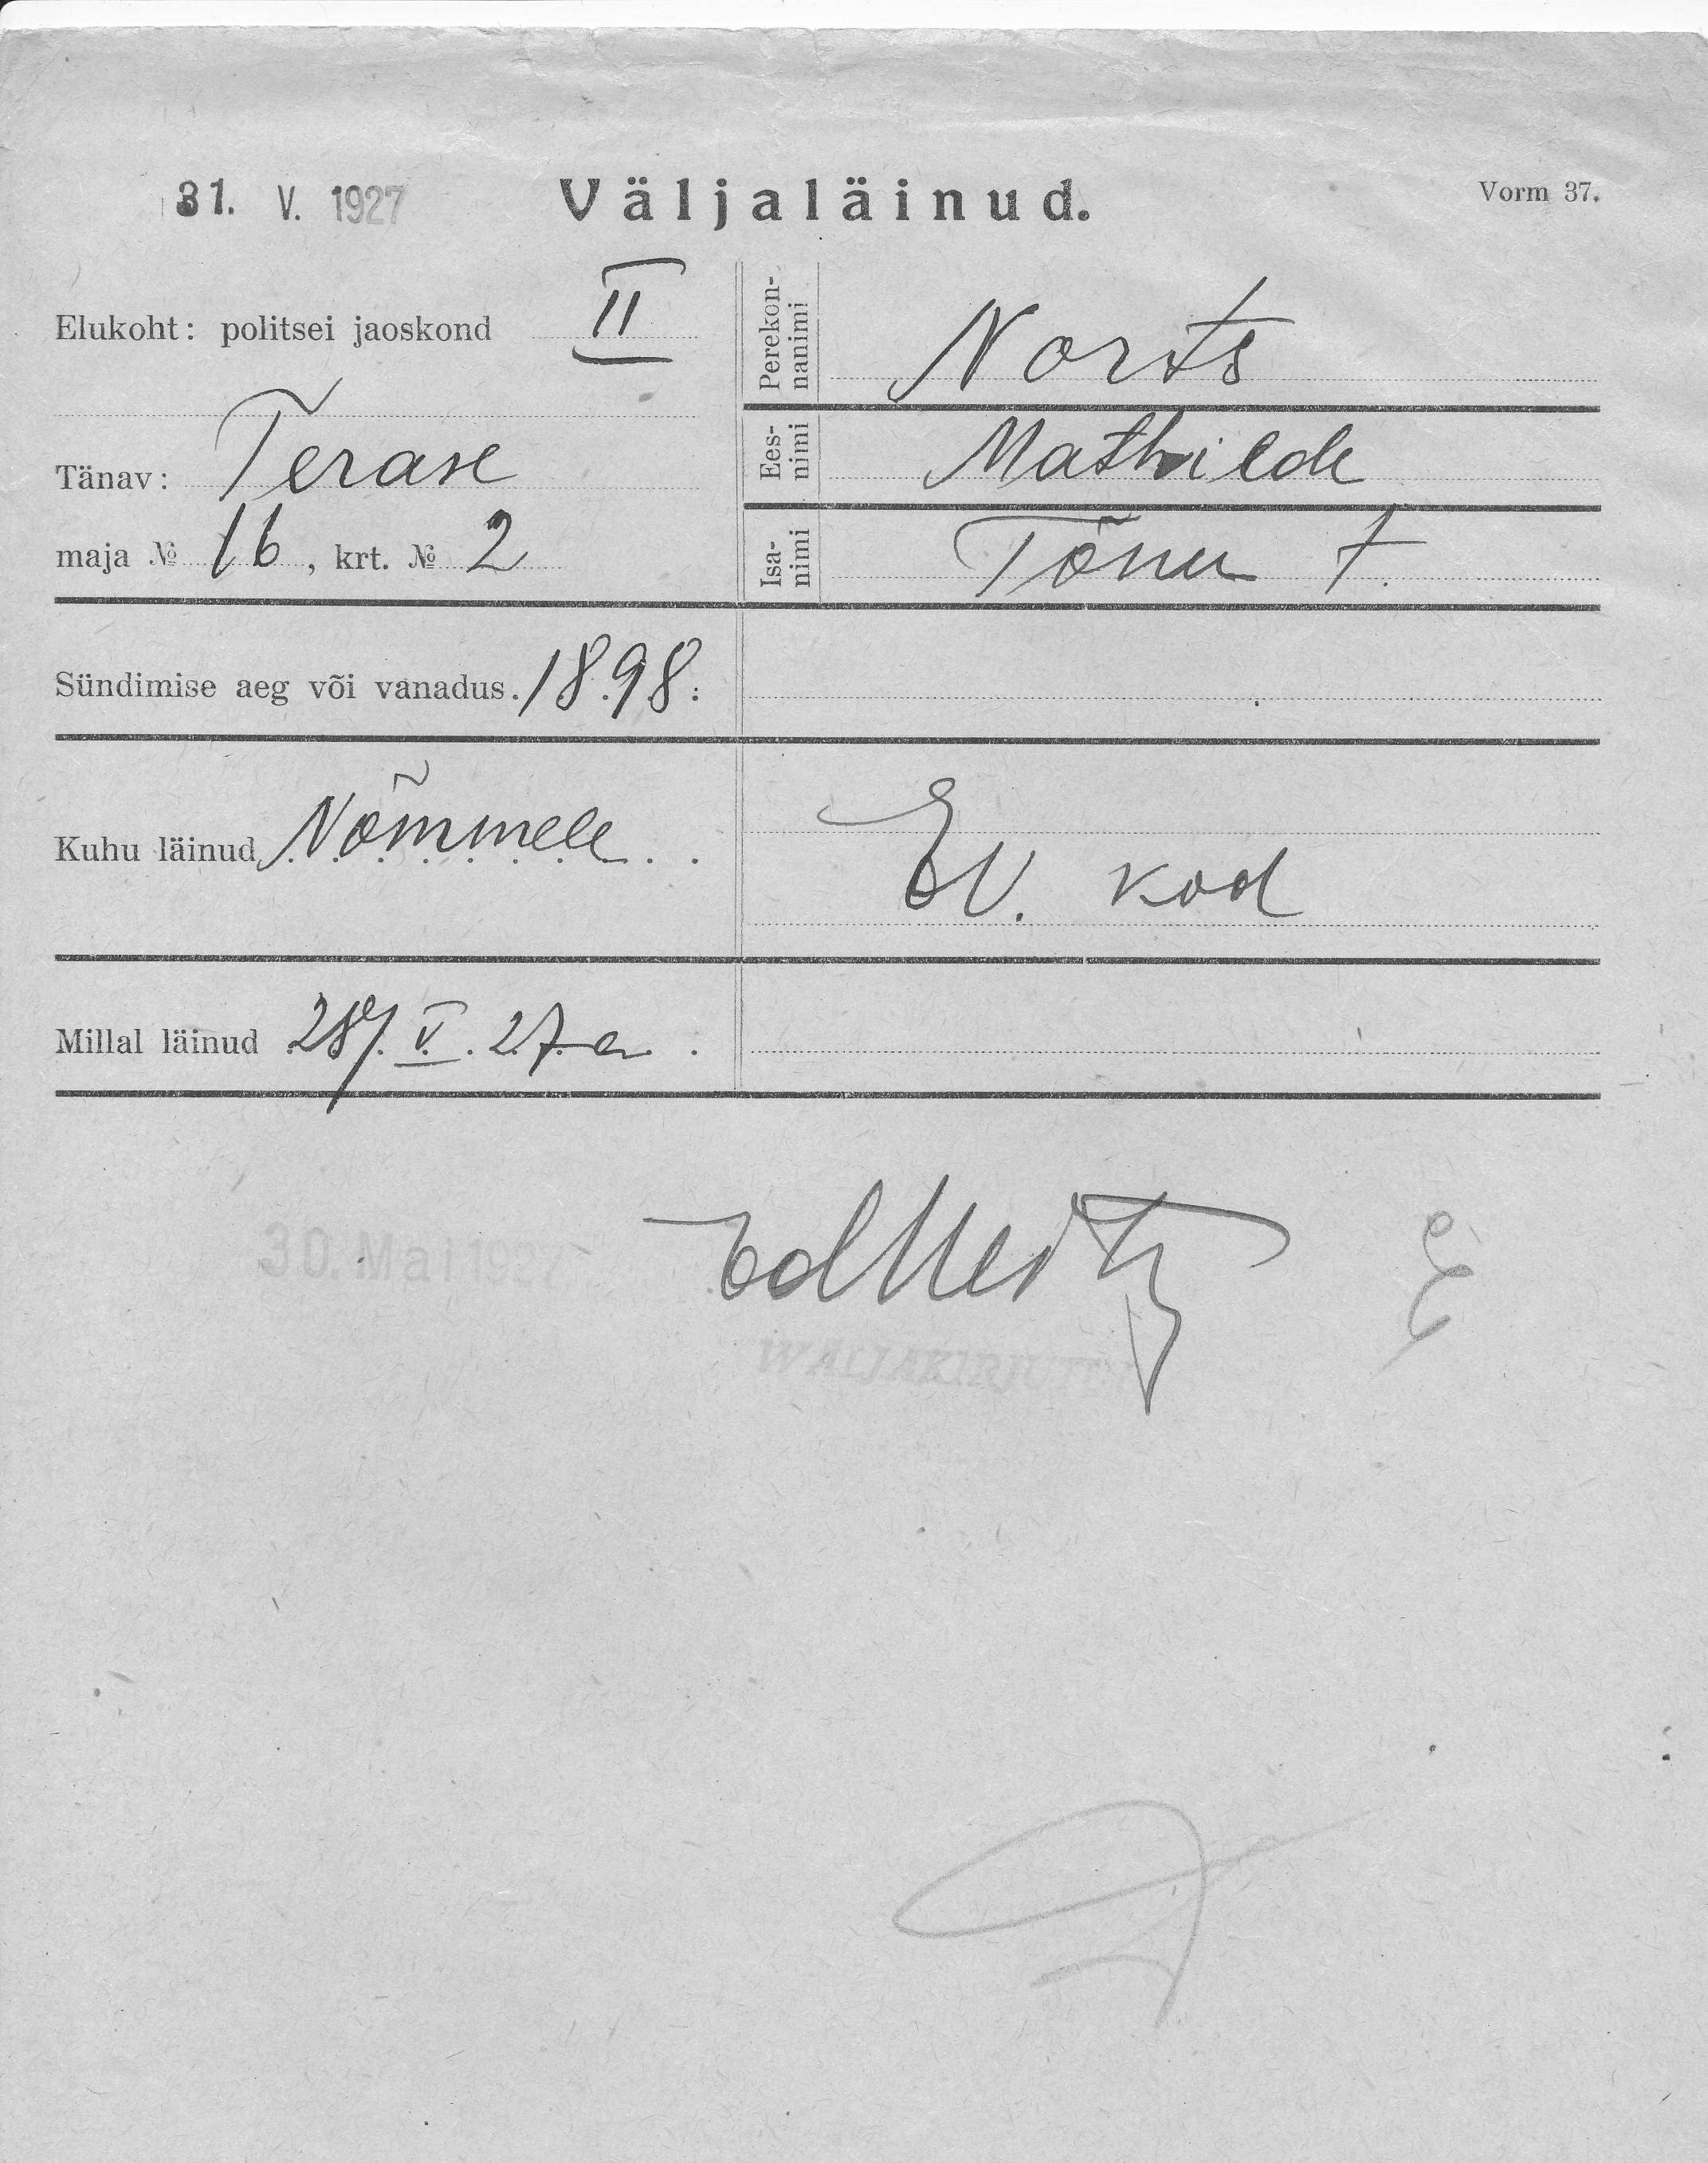 31. V. 1927
Väljaläinud.
Vorm 37.
Elukoht: politsei jaoskond II
Tänav: Terase
maja № 16, krt. № 2
Perekonnanimi Norts
Eesnimi Mathilde
Isanimi Tõnu t.
Sündimise aeg või vanadus. 1898.
Kuhu läinud Nõmmele
EV. kod
Millal läinud 28/V. 27. a.
30. Mai 1927
WALJAKIRJUTUD